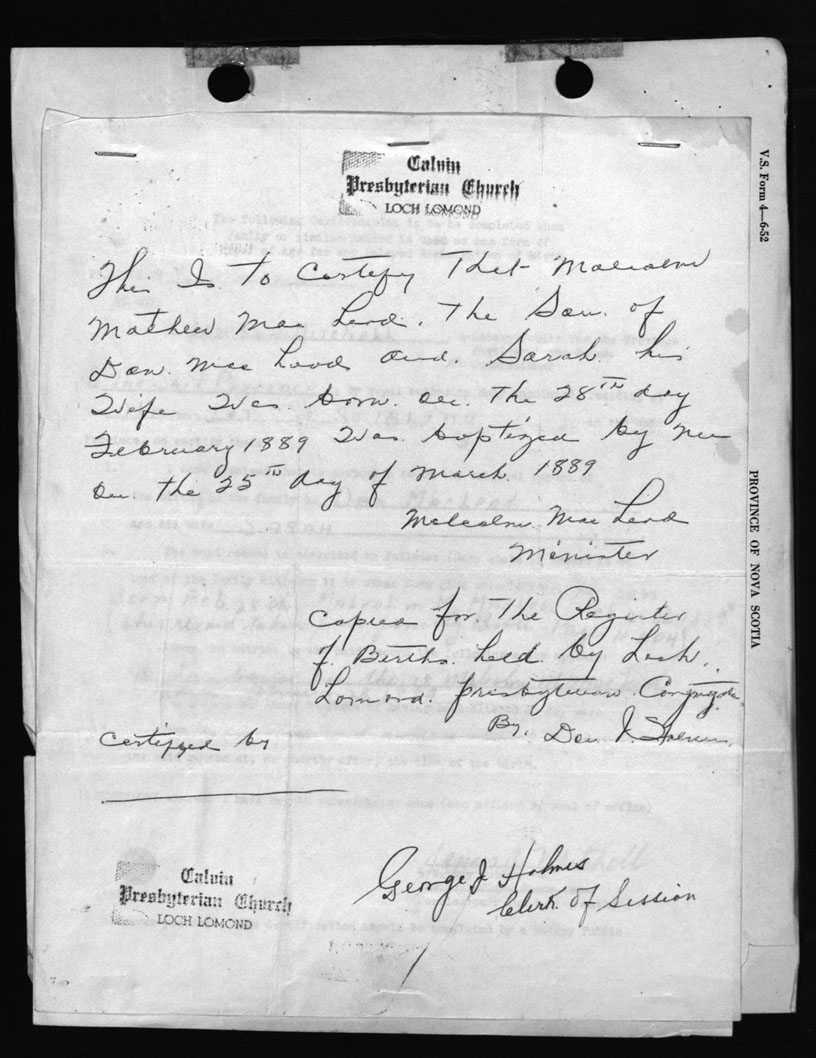 Calvin
Presbyterian Church
LOCH LOMOND
V.S. Form 4—6-52
PROVINCE OF NOVA SCOTIA
This Is To Certify That Malcolm
Mathew Mac Leod. The Son of
Dan. Mac Leod and Sarah his
Wife Was born on the 28TH day
February 1889 Was baptized by me
on the 25TH day of March 1889
Malcolm Mac Leod
Minister
copied for The Register
of Births held by Loch
Lomond Presbyterian
By. Dan
Certified by
Calvin
Presbyterian Church
LOCH LOMOND
George J Holmes
Clerk of Session